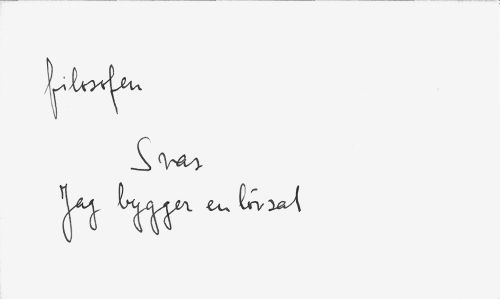 filosofen
Svar
Jag bygger en lövsal